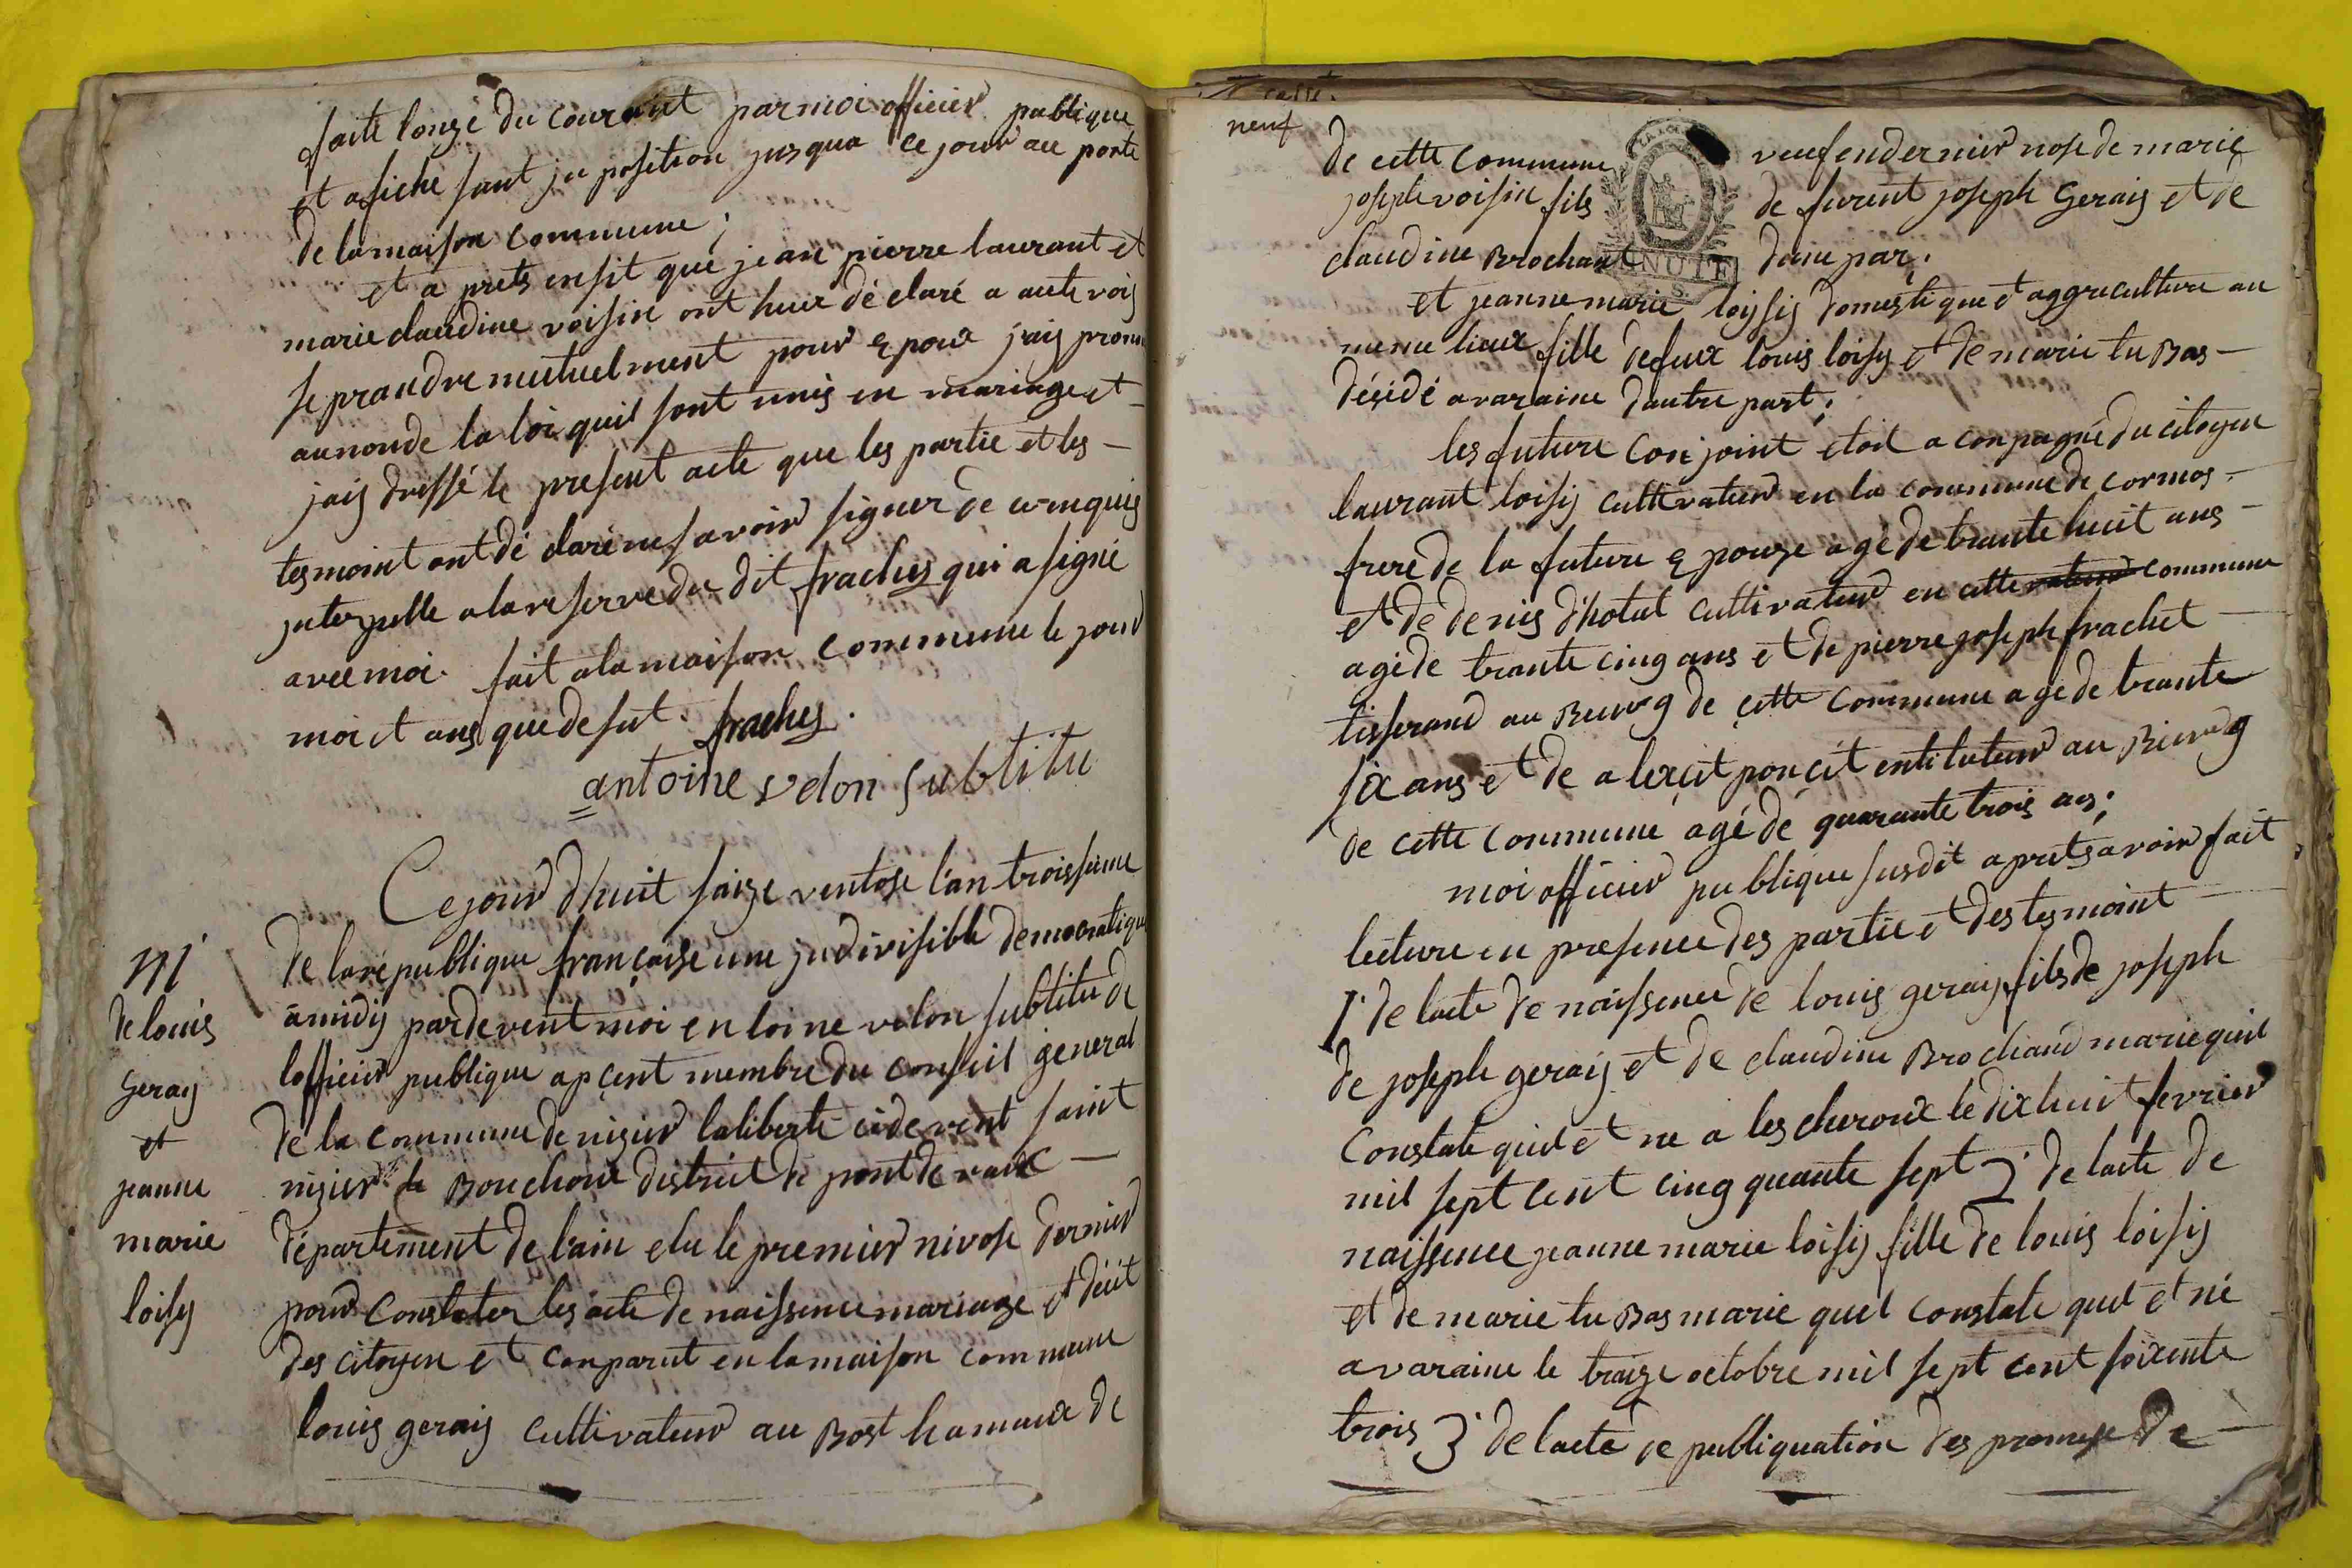 faite lonze du courant par moi officier publique
et afiche sant ju position jusqua ce jour au porte
de la maison commune ;
et a prets ensit que jean pierre laurant et
marie claudine voisin ont heux dé claré a aute voij
se prandre mutuelment pour epoux jais pronn
au non de la loi quil sont unis en mariage et
jais dressé le present acte que les partie et les –
tesmoint ont dé claré ne savoir signer de ce enquis
juterpelle a la reserve du dit frachus qui a signé
avec moi. fait a la maison commune le jour
moi et ans que de sut. frachus.
antoine velon subtitu
Ce jourd'huit saize ventose l'an troissieme
de la république françoise une judivisible democratique
a midis pardevent moi entoine velon subtitu de
lofficier publique apcent membre du conseil general
de la commune de nizier la liberte cidevent saint
nizier le Bouchoux district de pont de vaux –
département de l'ain elu le premier nivose dernier
pour constater les acte de naissence mariage et décét
des citoyen et conparut en la maison commune
louis gerais cultivateur au Bost hamaux de
m
de louis
Geray
et
jeanne
marie
loisy
neuf
de cette commune veuf en dernier nose de marie
josephe voisin fils de furent joseph Gerais et de
claudine Brochant dune par ;
MINUTE
et jeanne marie loissij domestique et aggriculture au
meme lieux fille de feux louis loisij et de marie tu Bas –
désidé a varaine dautre part ;
les future conjoint etoit a conpagné du citoyen
laurant loisij cultivateur en la commune de cormos –
frere de la future epouze agé de trante huit ans –
et de denis d'hotal cultivateur en cette commune
agé de trante cinq ans et de pierre joseph frachet –
tisserand au Bourg de cette commune agé de trante
six ans et de alexcit poncét entituteur au Bourg
de cette commune agé dé quarante trois ans ;
moi officier publique susdit a prets avoir fait
lecture en presence des partie et des tesmoint –
1° de lacte de naissence de louis gerais fils de joseph
de joseph gerais et de claudine Brochand marie quil
constate quil et né a les cheroux le dix huit fevrier
mil sept cent cinq quante sept 2° de lacte de
naissence jeanne marie loisij fille de louis loisij
et de marie tu Bas marie quel constate quel et né
a varaine le traize octobre mil sept cent soixente
trois 3° de lacte de publiquation des promesse de –